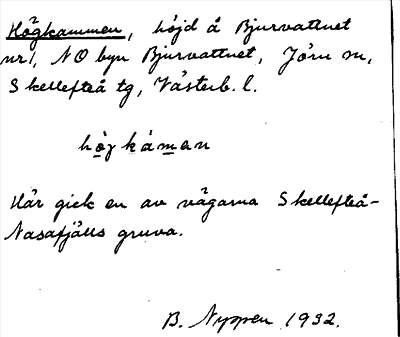 Högkammen, höjd å Bjurvattnet
nr1, NO byn Bjurvattnet, Jörn sn,
Skellefteå tg, Västerb. l.
hö̀gkáman
Här gick en av vägarna Skellefteå-
Nasafjälls gruva.
B. Nyppen 1932.